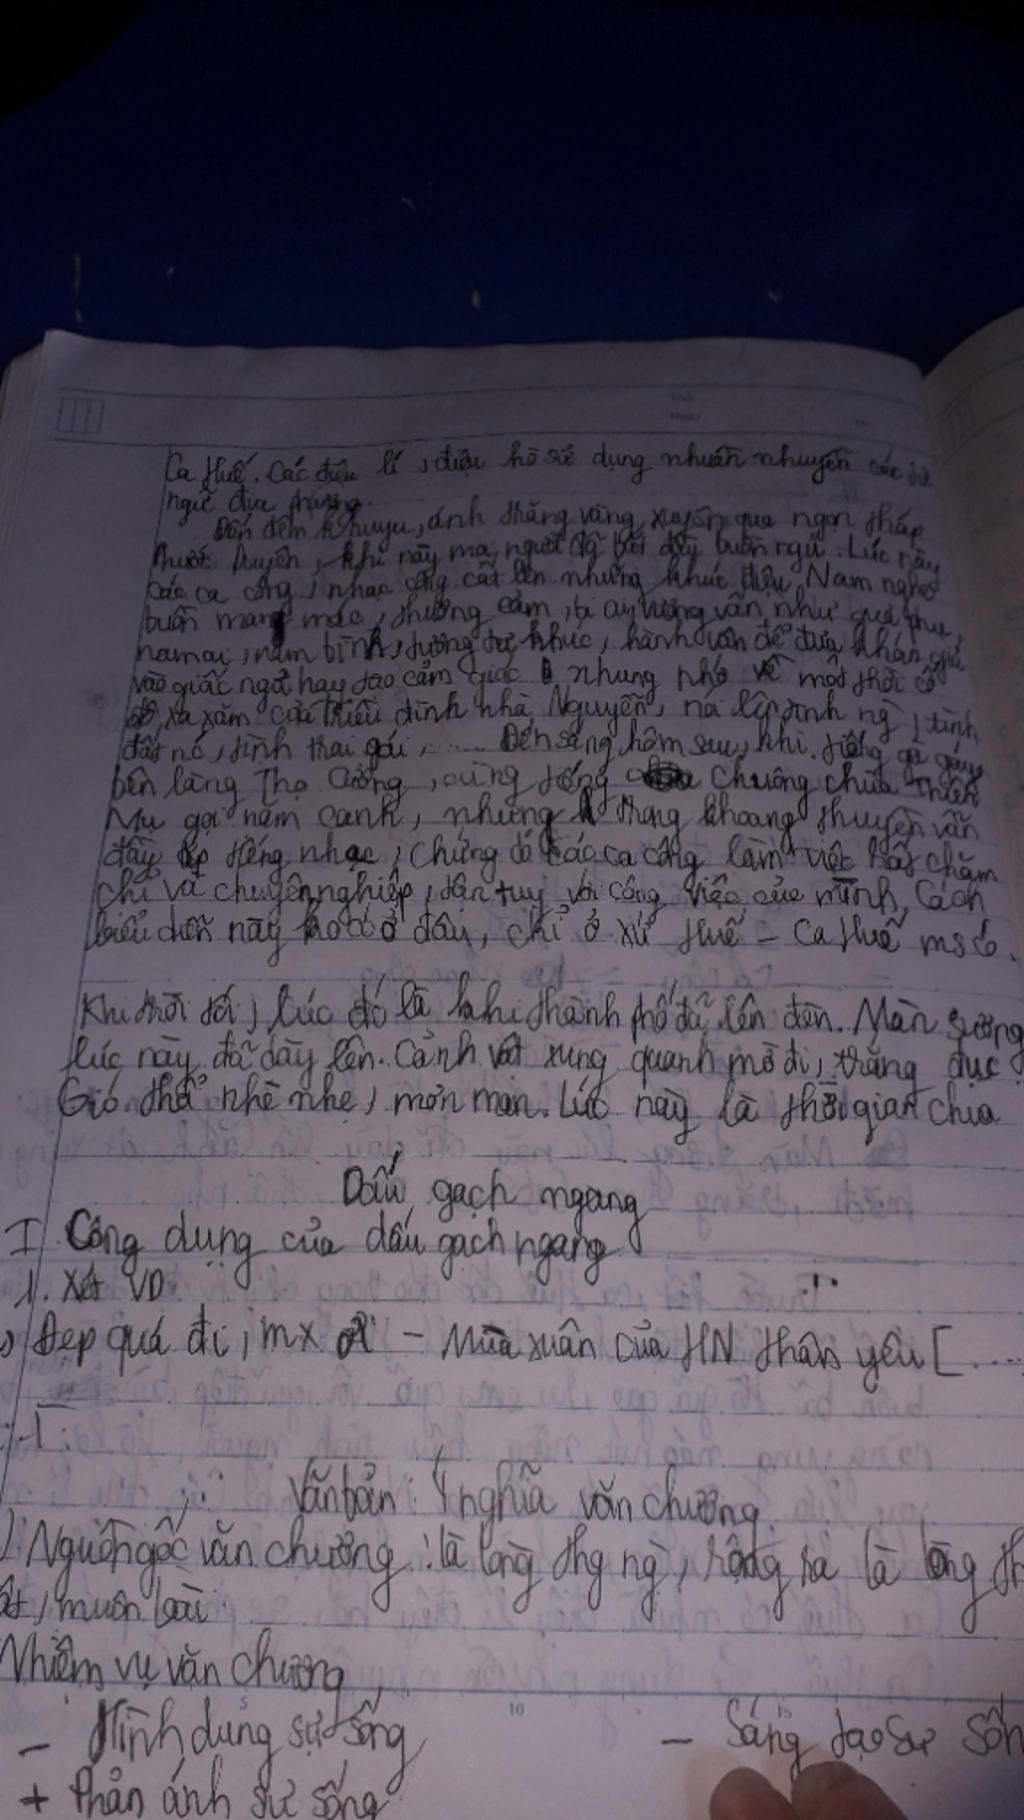 Ca Huế. Các điệu lí, điệu hò sử dụng nhuần nhuyễn các từ
ngữ địa phương.
Đến đêm khuya, ánh trăng vàng xuyên qua ngọn tháp
Phước Duyên, khi này mọi người đã bắt đầy buồn ngủ. Lúc này
các ca công, nhạc công cất lên những khúc điệu Nam nghe
buồn man mác, thương cảm, bi ai, vương vấn như quả phụ,
nam ai, nam bình, tương tư khúc, hành vân để đưa khán giả
vào giấc ngủ hay tạo cảm giác nhung nhớ về một thời
xa xăm của triều đình nhà Nguyễn, tình
đất nc, tình trai gái, ..... Đến sáng hôm sau, khi tiếng gà gáy
bên làng Thọ Cương, cùng tiếng chuông chùa Thiên
Mụ gọi năm canh, nhưng trong khoang thuyền vẫn
đầy ắp tiếng nhạc, chứng tỏ các ca công làm việc rất chăm
chỉ và chuyên nghiệp, tận tụy với công việc của mình. Cách
biểu diễn này ko có ở đâu, chỉ ở xứ Huế - Ca Huế ms có.
Khi trời tối, lúc đó là khi thành phố đã lên đèn. Màn sương
lúc này đã dày lên. Cảnh vật xung quanh mờ đi, trắng đục
Gió thổi nhè nhẹ, mơn man. Lúc này là thời gian chia
Dấu gạch ngang
I Công dụng của dấu gạch ngang
1. Xét VD
Đẹp quá đi, mx ơi - Mùa xuân của HN thân yêu [....
Văn bản: Ý nghĩa văn chương
Nguồn gốc văn chương: là lòng thg ng, rộng ra là lòng th
muôn loài
Nhiệm vụ văn chương
- Hình dung sự sống - Sáng tạo sự sốn
+ Phản ánh sự sống